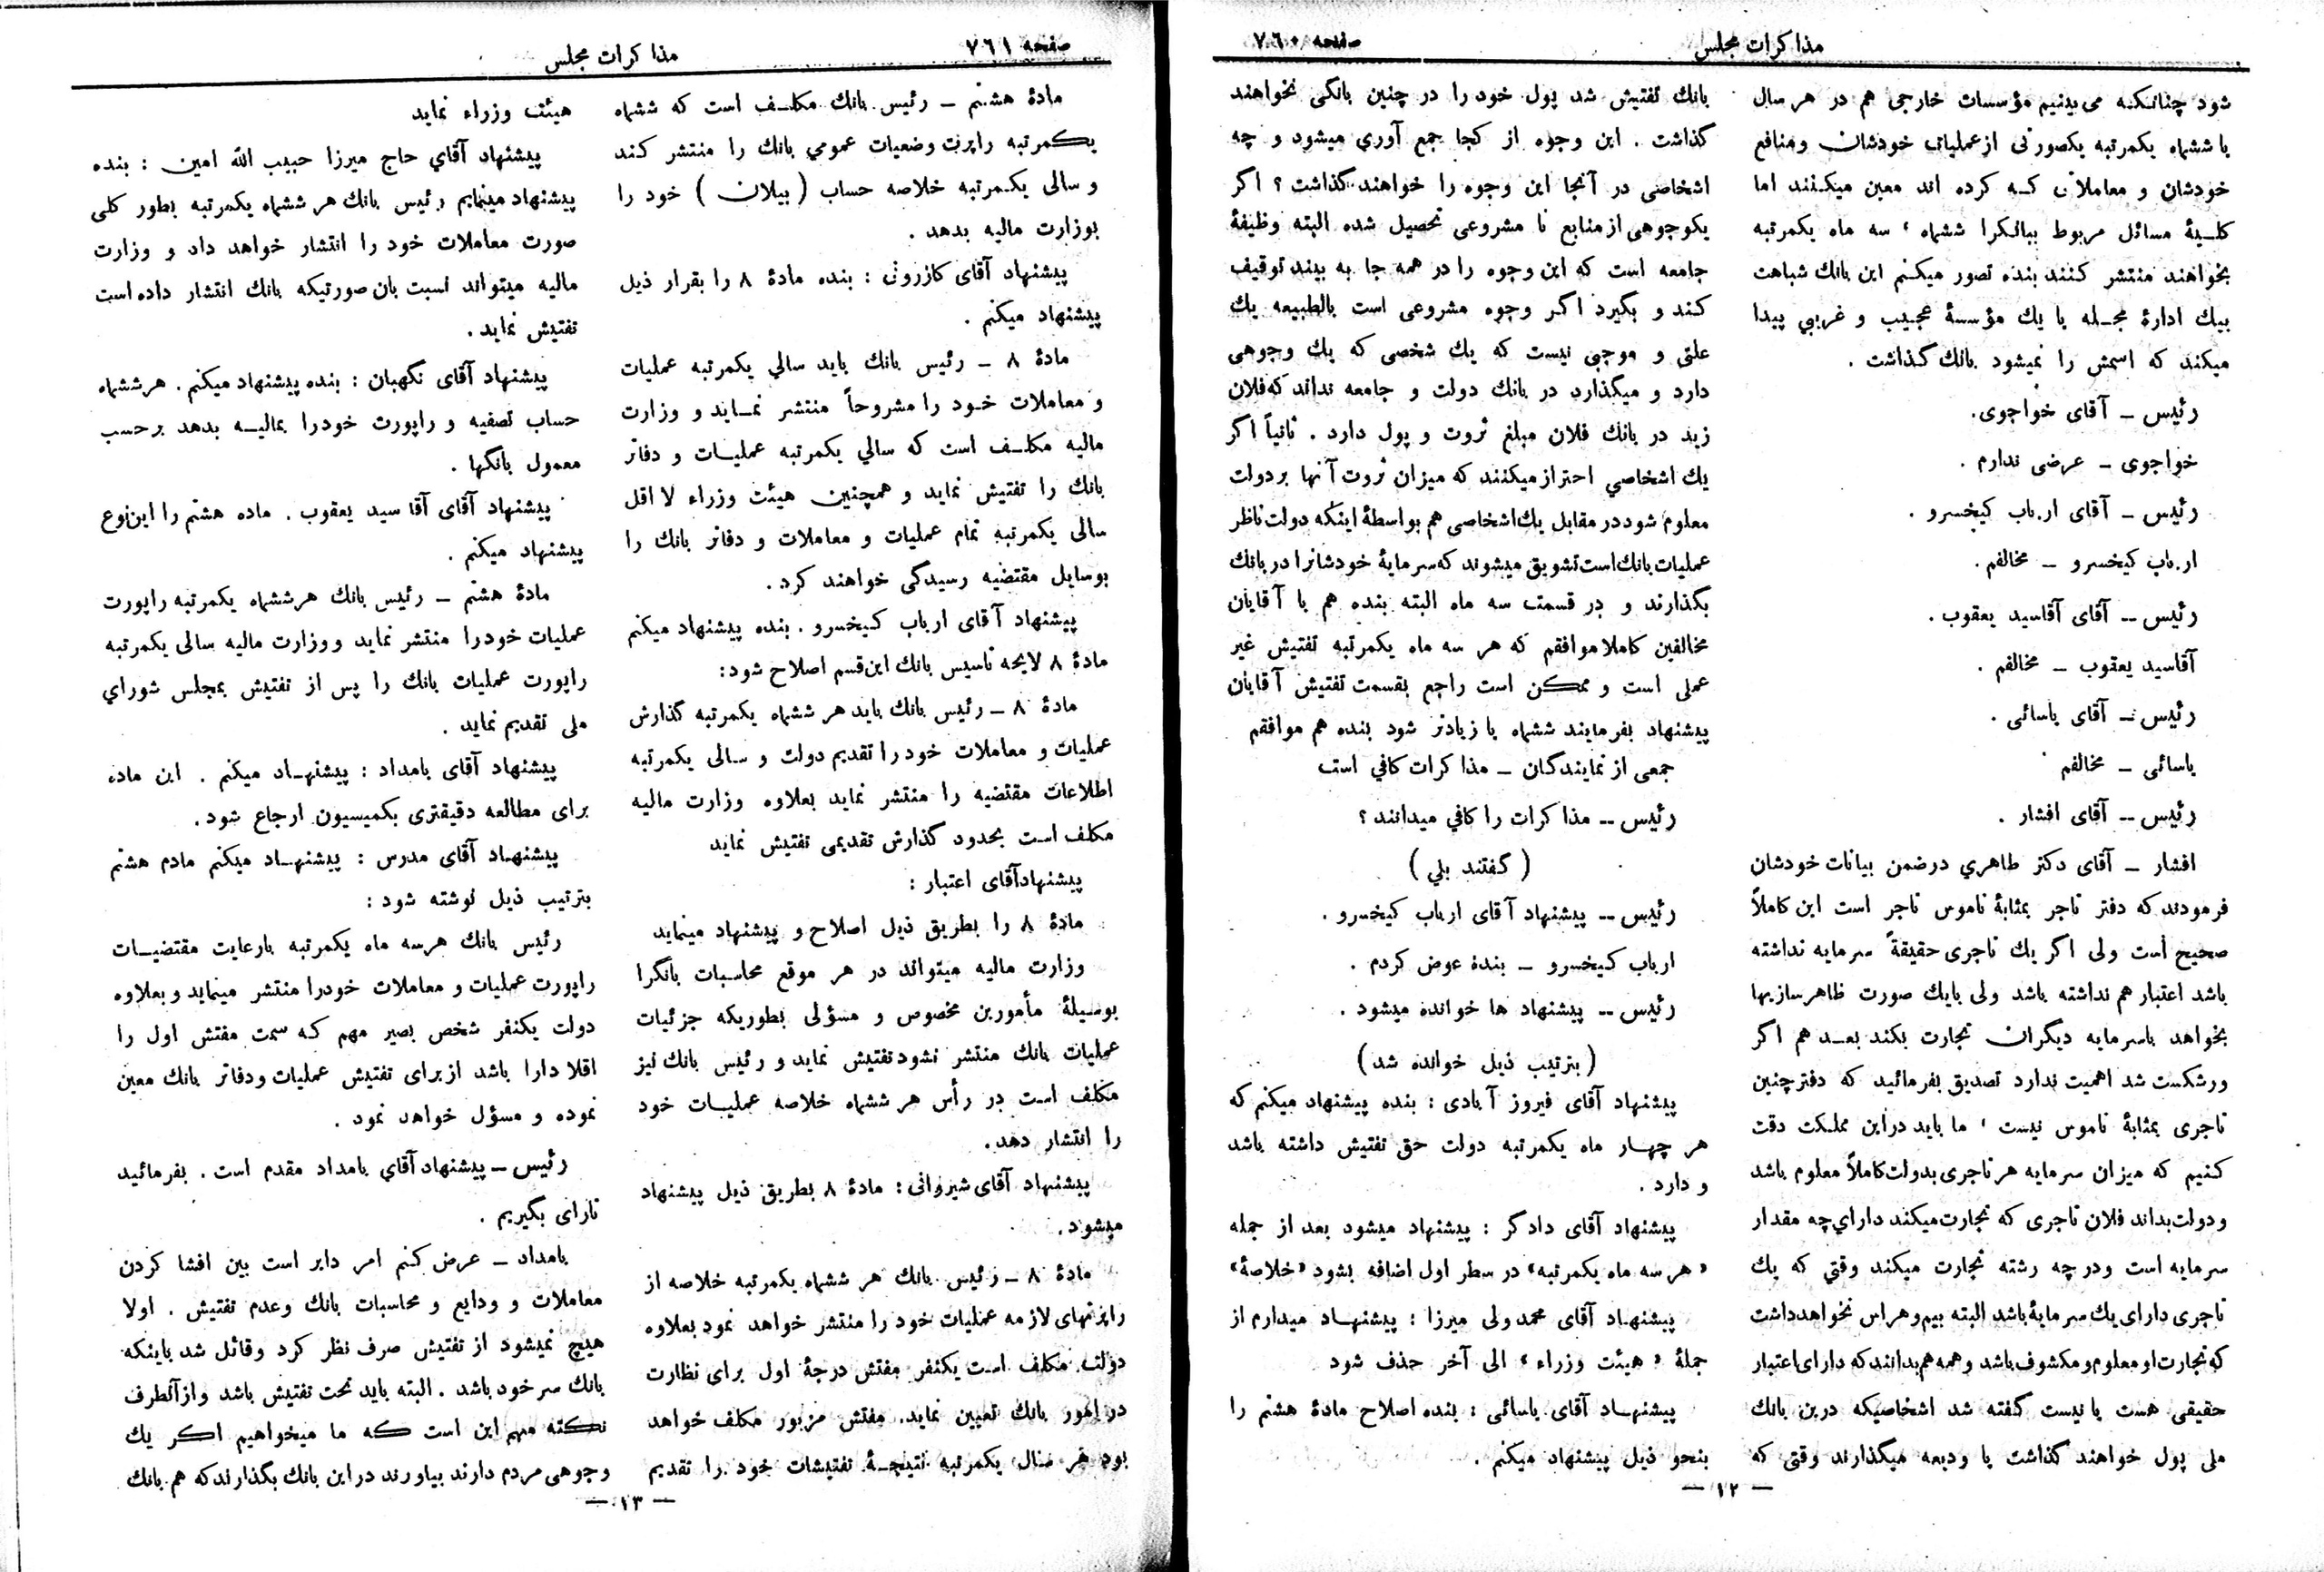 مذاکرات مجلس
صفحه ۷۶۰
شود چنانکه می بینیم مؤسسات خارجی هم در هر سال
یا ششماه یکمرتبه یکصورتی از عملیات خودشان و منافع
خودشان و معاملاتی که کرده اند معین میکنند اما
کلیهٔ مسائل مربوط ببانکرا ششماه ، سه ماه یکمرتبه
بخواهند منتشر کنند بنده تصور میکنم این بانك شباهت
بیك ادارهٔ مجله یا یك مؤسسهٔ عجیب و غریبی پیدا
میکند که اسمش را نمیشود بانك گذاشت .
رئیس ـ آقای خواجوی.
خواجوی ـ عرضی ندارم .
رئیس ـ آقای ارباب کیخسرو .
ارباب کیخسرو ـ مخالفم.
رئیس ـ آقای آقاسید یعقوب .
آقاسید یعقوب ـ مخالفم .
رئیس ـ آقای یاسائی .
یاسائی ـ مخالفم
رئیس ـ آقای افشار .
افشار ـ آقای دکتر طاهري درضمن بیانات خودشان
فرمودند که دفتر تاجر بمثابهٔ ناموس تاجر است این کاملاً
صحیح است ولی اگر یك تاجری حقیقةً سرمایه نداشته
باشد اعتبار هم نداشته باشد ولی بایك صورت ظاهر سازیها
بخواهد باسرمایه دیگران تجارت بکند بعد هم اگر
ورشکست شد اهمیت ندارد تصدیق بفرمائید که دفتر چنین
تاجری بمثابهٔ ناموس نیست ، ما باید دراین مملکت دقت
کنیم که میزان سرمایه هر تاجری بدولت کاملاً معلوم باشد
و دولت بداند فلان تاجری که تجارت میکند داراي چه مقدار
سرمایه است ودرچه رشته تجارت میکند وقتی که یك
تاجری دارای یك سرمایهٔ باشد البته بیم و هراس نخواهد داشت
که تجارت او معلوم و مکشوف باشد و همه هم بدانند که دارای اعتبار
حقیقی هست یا نیست گفته شد اشخاصیکه درین بانك
ملی پول خواهند گذاشت یا ودیعه میگذارند وقتی که
بانك تفتیش شد پول خود را در چنین بانگی نخواهند
گذاشت . این وجوه از کجا جمع آوری میشود و چه
اشخاصی در آنجا این وجوه را خواهند گذاشت ؟ اگر
یکوجوهی از منابع نا مشروعی تحصیل شده البته وظیفهٔ
جامعه است که این وجوه را در همه جا به بیند توقیف
کند و بگیرد اگر وجوه مشروعی است بالطبیعه یك
علتی و موجبی نیست که یك شخصی که یك وجوهی
دارد و میگذارد در بانك دولت و جامعه نداند که فلان
زید در بانك فلان مبلغ ثروت و پول دارد . ثانیاً اگر
یك اشخاصی احتراز میکنند که میزان ثروت آنها بر دولت
معلوم شود در مقابل یك اشخاصی هم بواسطهٔ اینکه دولت ناظر
عملیات بانك است تشویق میشوند که سرمایهٔ خودشانرا در بانك
بگذارند و در قسمت سه ماه البته بنده هم با آقایان
مخالفین کاملا موافقم که هر سه ماه یکمرتبه تفتیش غیر
عملی است و ممکن است راجع بقسمت تفتیش آقایان
پیشنهاد بفرمایند ششماه یا زیادتر شود بنده هم موافقم
جمعی از نمایندگان ـ مذاکرات کافی است
رئیس ـ مذاکرات را کافي میدانند ؟
( گفتند بلي )
رئیس ـ پیشنهاد آقای ارباب کیخسرو .
ارباب کیخسرو ـ بنده عوض کردم .
رئیس ـ پیشنهاد ها خوانده میشود .
( بترتیب ذیل خوانده شد )
پیشنهاد آقای فیروز آبادی : بنده پیشنهاد میکنم که
هر چهار ماه یکمرتبه دولت حق تفتیش داشته باشد
و دارد .
پیشنهاد آقای دادگر : پیشنهاد میشود بعد از جمله
« هر سه ماه یکمرتبه » در سطر اول اضافه بشود « خلاصهٔ »
پیشنهاد آقای محمد ولی میرزا : پیشنهاد میدارم از
جملهٔ « هیئت وزراء » الی آخر حذف شود
پیشنهاد آقای یاسائی : بنده اصلاح مادهٔ هشتم را
بنحو ذیل پیشنهاد میکنم .
ـ ۱۲ ـ
صفحه ۷۶۱
مذاکرات مجلس
مادهٔ هشتم ـ رئیس بانك مکلف است که ششماه
یکمرتبه راپرت وضعیات عمومي بانك را منتشر کند
و سالی یکمرتبه خلاصه حساب ( بیلان ) خود را
بوزارت مالیه بدهد .
پیشنهاد آقای کازرونی : بنده مادهٔ ۸ را بقرار ذیل
پیشنهاد میکنم .
مادهٔ ۸ ـ رئیس بانك باید سالي یکمرتبه عملیات
و معاملات خود را مشروحاً منتشر نماید و وزارت
مالیه مکلف است که سالي یکمرتبه عملیات و دفاتر
بانك را تفتیش نماید و همچنین هیئت وزراء لا اقل
سالی یکمرتبه تمام عملیات و معاملات و دفاتر بانك را
بوسایل مقتضیه رسیدگی خواهند کرد .
پیشنهاد آقای ارباب کیخسرو . بنده پیشنهاد میکنم
مادهٔ ۸ لایحه تاسیس بانك این قسم اصلاح شود:
مادهٔ ۸ ـ رئیس بانك باید هر ششماه یکمرتبه گذارش
عملیات و معاملات خود را تقدیم دولت و سالی یکمرتبه
اطلاعات مقتضیه را منتشر نماید بعلاوه وزارت مالیه
مکلف است بحدود گذارش تقدیمی تفتیش نماید
پیشنهاد آقای اعتبار :
مادهٔ ۸ را بطریق ذیل اصلاح و پیشنهاد مینماید
وزارت مالیه میتواند در هر موقع محاسبات بانگرا
بوسیلهٔ مأمورین مخصوص و مسؤلی بطوریکه جزئیات
عملیات بانك منتشر نشود تفتیش نماید و رئیس بانك نیز
مکلف است در رأس هر ششماه خلاصه عملیات خود
را انتشار دهد.
پیشنهاد آقای شیروانی : مادهٔ ۸ بطریق ذیل پیشنهاد
میشود.
مادهٔ ۸ ـ رئیس بانك هر ششماه یکمرتبه خلاصه از
راپرتهای لازمه عملیات خود را منتشر خواهد نمود بعلاوه
دولت مکلف است یکنفر مفتش درجهٔ اول برای نظارت
در امور بانك تعیین نماید. مفتش مزبور مکلف خواهد
بود هر سال یکمرتبه نتیجهٔ تفتیشات خود را تقدیم
هیئت وزراء نماید
پیشنهاد آقاي حاج میرزا حبیب الله امین : بنده
پیشنهاد مینمایم رئیس بانك هر ششماه یکمرتبه بطور کلی
صورت معاملات خود را انتشار خواهد داد و وزارت
مالیه میتواند نسبت بان صورتیکه بانك انتشار داده است
تفتیش نماید .
پیشنهاد آقای نگهبان : بنده پیشنهاد میکنم . هر ششماه
حساب تصفیه و راپورت خود را بمالیه بدهد برحسب
معمول بانگها .
پیشنهاد آقای آقا سید یعقوب . ماده هشتم را این نوع
پیشنهاد میکنم .
مادهٔ هشتم ـ رئیس بانك هر ششماه یکمرتبه راپورت
عملیات خود را منتشر نماید و وزارت مالیه سالی یکمرتبه
راپورت عملیات بانك را پس از تفتیش بمجلس شوراي
ملی تقدیم نماید .
پیشنهاد آقای بامداد : پیشنهاد میکنم . این ماده
برای مطالعه دقیقتری بکمیسیون ارجاع شود .
پیشنهاد آقای مدرس : پیشنهاد میکنم مادم هشتم
بترتیب ذیل نوشته شود :
رئیس بانك هرسه ماه یکمرتبه بارعایت مقتضیات
راپورت عملیات و معاملات خودرا منتشر مینماید و بعلاوه
دولت یکنفر شخص بصیر مهم که سمت مفتش اول را
اقلا دارا باشد از برای تفتیش عملیات و دفاتر بانك معین
نموده و مسؤل خواهد نمود .
رئیس ـ پیشنهاد آقاي بامداد مقدم است . بفرمائید
تارای بگیریم .
بامداد ـ عرض کنم امر دایر است بین افشا کردن
معاملات و ودایع و محاسبات بانك وعدم تفتیش . اولا
هیچ نمیشود از تفتیش صرف نظر کرد و قائل شد باینکه
بانك سر خود باشد . البته باید تحت تفتیش باشد و از آنطرف
نکته مهم این است که ما میخواهیم اگر یك
وجوهی مردم دارند بیاورند در این بانك بگذارند که هم بانك
ـ ۱۳ ـ